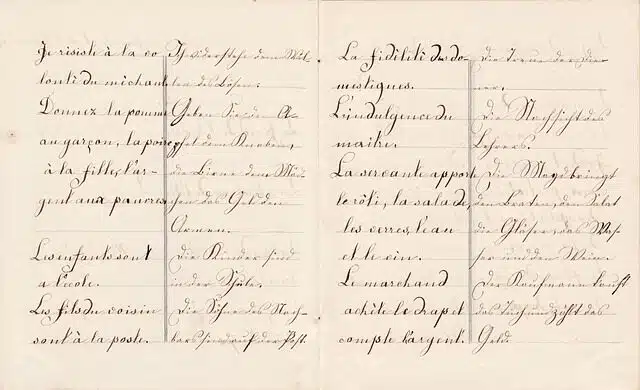 Je résiste à la vo
lonté du méchant
Donnez la pomme
au garçon, la poire
à la fille, l'ar-
gent aux pauvres
Les enfants sont
a l'école.
Les fils du voisin
sont à la poste.
Ich widerstehe dem Wil-
len des Bösen.
Geben Sie den A-
pfel dem Knaben,
die Birne dem Mäd-
chen das Geld den
Armen.
Die Kinder sind
in der Schule.
Die Söhne des Nach-
bars sind auf der Post.
La fidélité des do-
mestiques.
L'indulgence du
maître.
La servante apporte
le rôti, la salade,
les verres, l'eau
et le vin.
Le marchand
achète le drap et
compte l'argent.
Die Treue der Die-
ner.
Die Nachsicht des
Lehrers.
Die Magd bringt
den Braten, den Salat
die Gläser, das Was-
ser und den Wein.
Der Kaufmann kauft
das Tuch und zählt das
Geld.